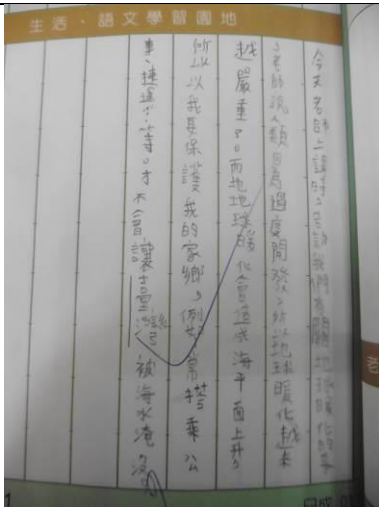 生活、語文學習園地
今天老師上課時,告訴我們有關地球暖化的事
,老師說人類因為過度開發,所以地球暖化越來
越嚴重。而地球暖化會造成海平面上升
所以以我要保護我的家鄉,例如:常搭乘公
車、捷運⋯等。才不會讓 被海水淹沒